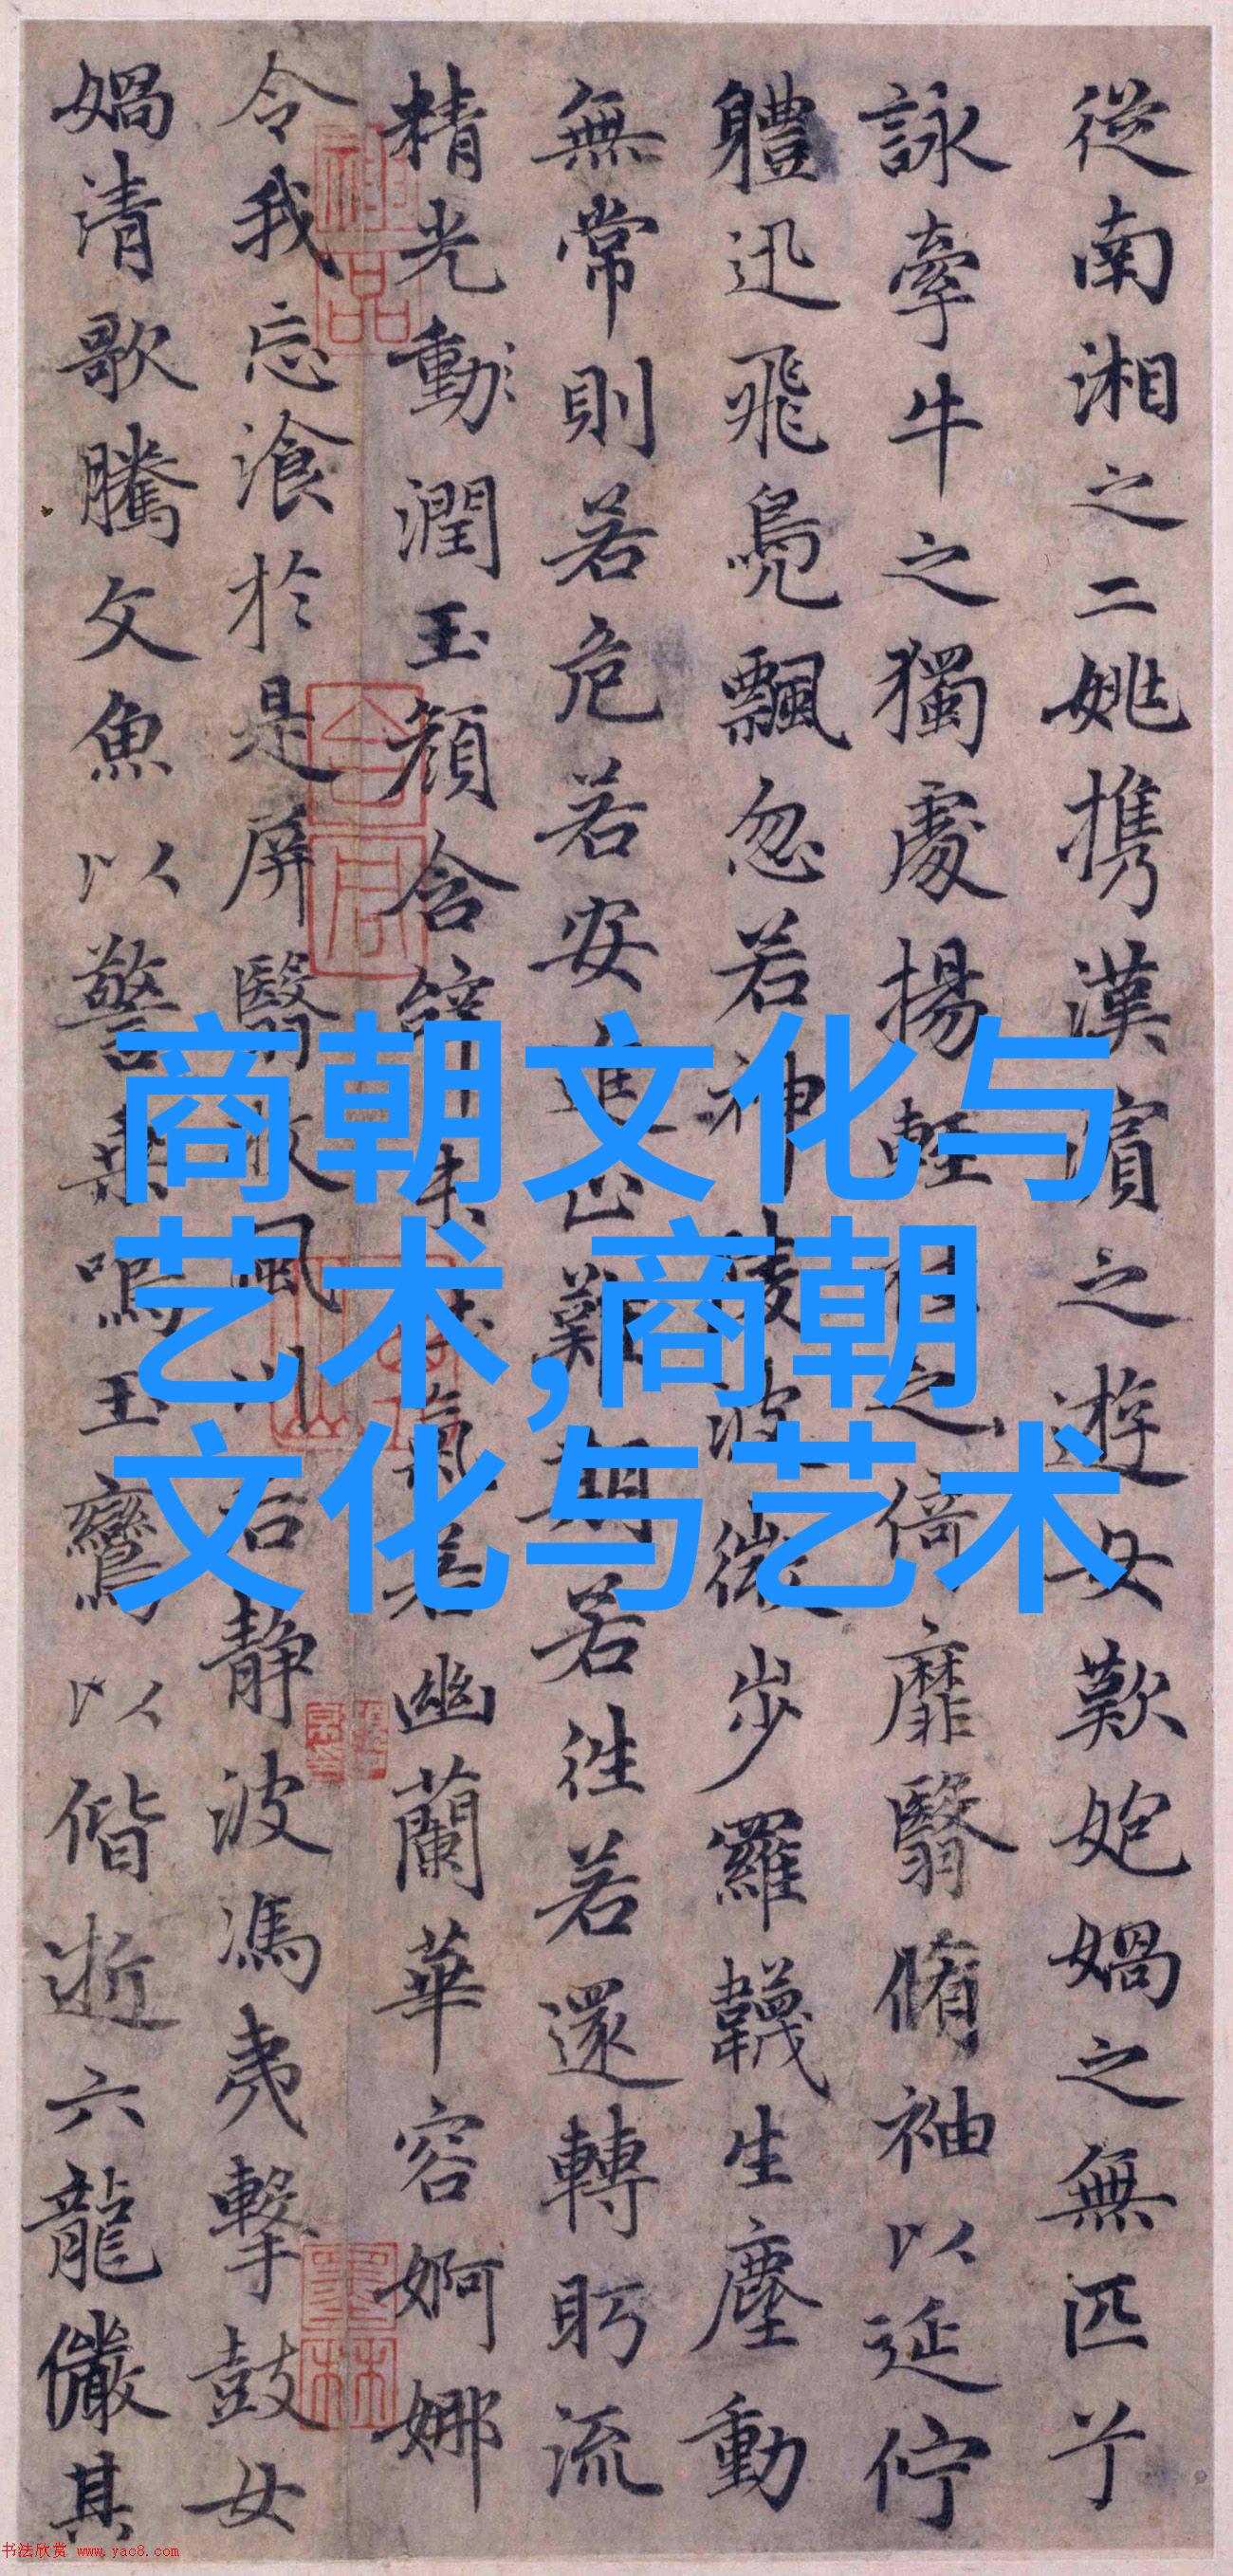 從南湘之二姚攜漢濱之遊女歎匏媧之無匹兮
詠牽牛之獨處揚輕袿之倚靡翳脩袖以延佇
軆迅飛鳧飄忽若神陵波微步羅韈生塵動
無常則若危若安進止難期若往若還轉眄流
精光動潤玉顏含辭未吐氣若幽蘭華容婀娜
令我忘飡於是屏翳收風川后靜波馮夷擊鼓女
媧清歌騰文魚以警乘鳴玉鸞以偕逝六龍儼其
商朝文化与
艺术,商朝
文化与艺术
神品
墨林
书法欣赏 www.yac8.com